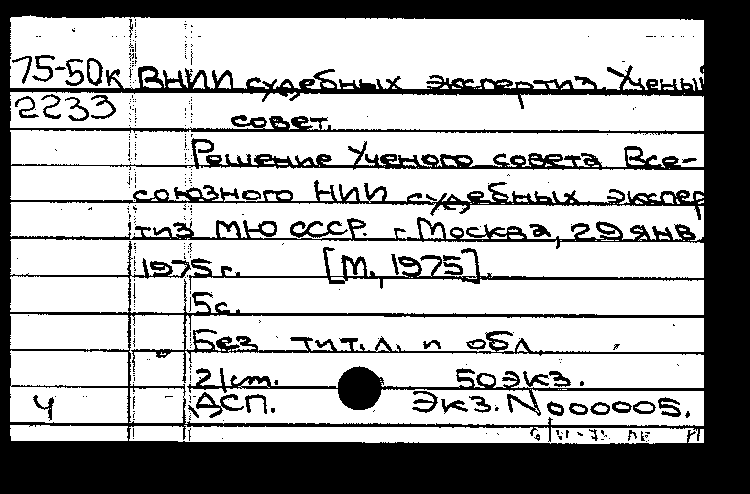 75-50к ВНИИ судебных экспертиз. Ученый
2233 совет.
Решение Ученого совета Все-
союзного НИИ судебных экспер
тиз МЮ СССР. г. Москва, 29 янв.
1975 г. [М., 1975].
5с.
Без тит. л. и обл.
2/ст. 50 экз.
Ч ДСП. Экз. №000005.